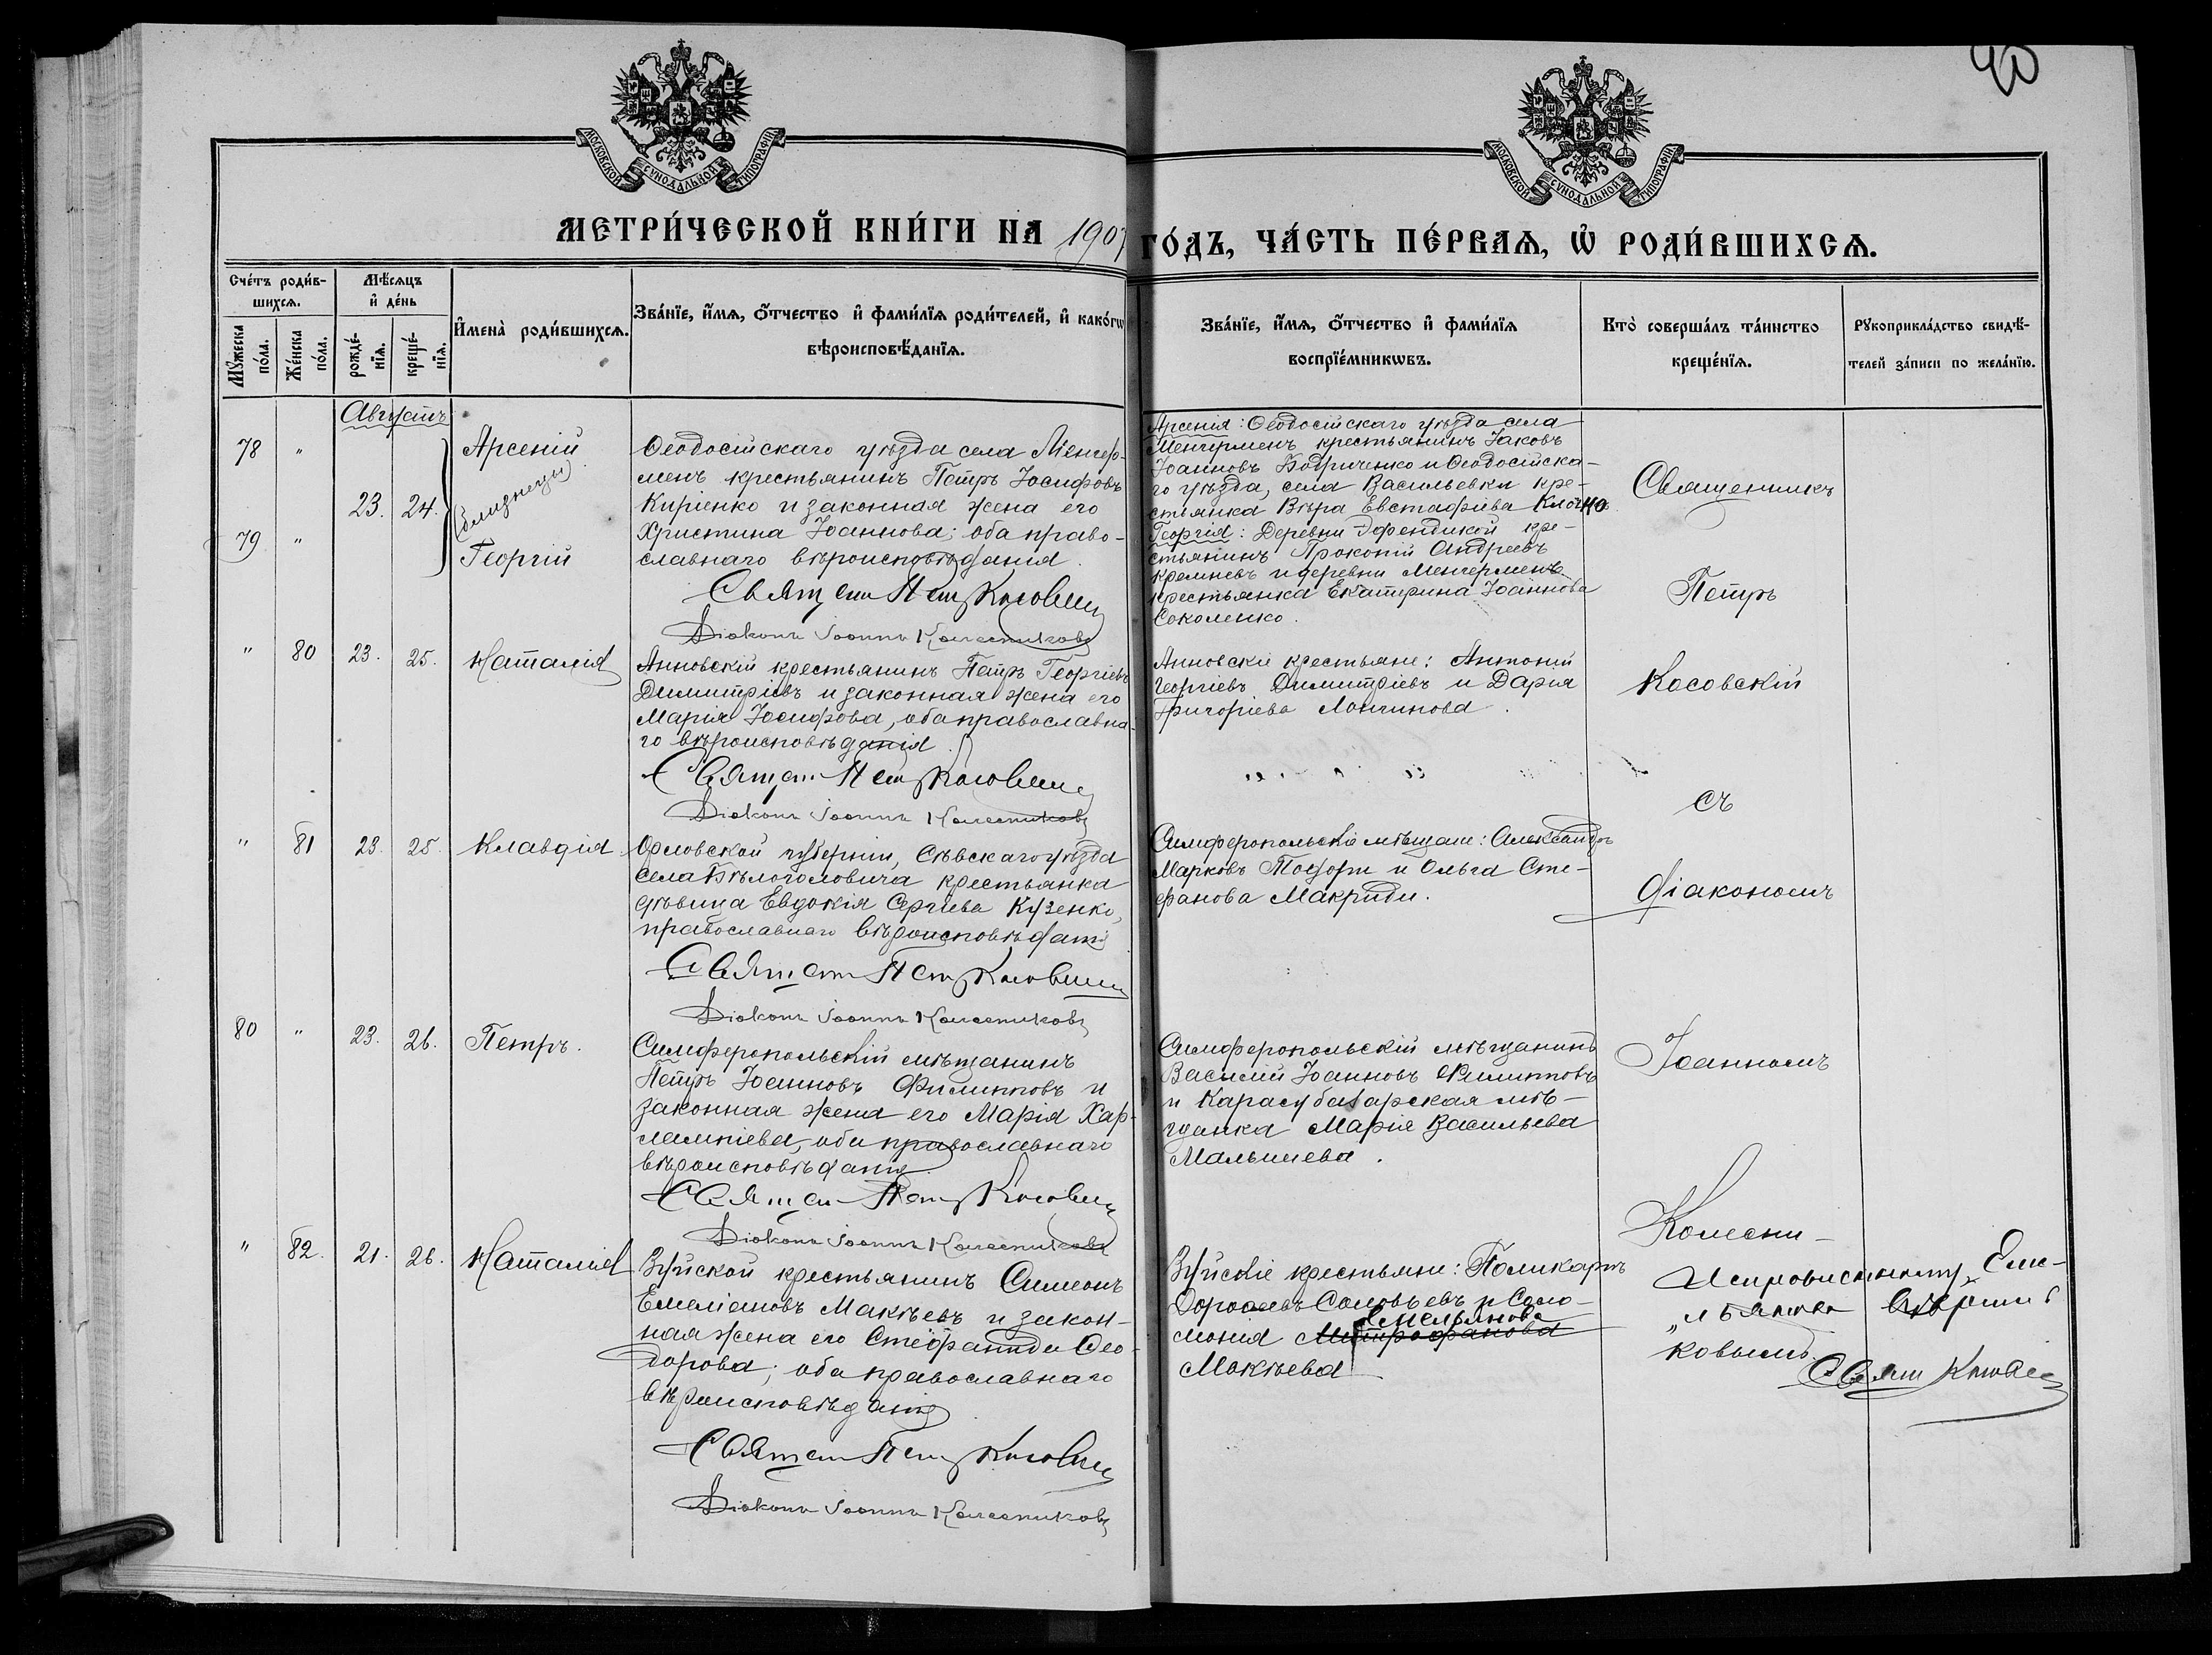 90
МОСКОВСКОЙ СѴНОДАЛЬНОЙ ТИПОГРАФІИ
МОСКОВСКОЙ СѴНОДАЛЬНОЙ ТИПОГРАФІИ
МЕТРИ́ЧЕСКОЙ КНИ́ГИ НА 1907 ГО́ДЪ, ЧА́СТЬ ПЕ́РВАѦ, Ѡ҆ РОДИ́ВШИХСѦ.
Сче́тъ роди́в-
шихсѧ.
Мꙋ́жеска по́ла.
Же́нска по́ла.
Мѣ́сѧцъ
и҆ де́нь
рожде́-
нїѧ.
креще́-
нїѧ.
И҆мена̀ роди́вшихсѧ.
Зва́нїе, и҆́мѧ, ѻ҆́тчество и҆ фами́лїѧ роди́телей, и҆ како́гѡ
вѣроисповѣ́данїѧ.
Зва́нїе, и҆́мѧ, ѻ҆́тчество и҆ фами́лїѧ
воспрїе́мникѡвъ.
Кто̀ соверша́лъ та́инство
креще́нїѧ.
Рꙋкоприкла́дство свидѣ́-
телей за́писи по жела́нїю.
Августъ
78 "
23. 24.
79 "
Арсеній
(близнецы)
Георгій
Ѳеодосійскаго уѣзда села Менгер-
менъ крестьянинъ Петръ Іосифовъ
Киріенко и законная жена его
Христина Іоаннова; оба право-
славнаго вѣроисповѣданія.
Священ Петръ Косовскій
Діаконъ Іоаннъ Колесниковъ
Арсенія: Ѳеодосійскаго уѣзда села
Менгерменъ крестьянинъ Іаковъ
Іоанновъ Бодриченко и Ѳеодосійска-
го уѣзда, села Васильевки кре-
стьянка Вѣра Евстафіева
Георгія: Деревни кре-
стьянинъ Прокопій Андреевъ
Кремневъ и деревни Менгерменъ
крестьянка Екатерина Іоаннова
Соколенко.
" 80 23. 25. Наталія
Анновскій крестьянинъ Петръ Георгіевъ
Димитріевъ и законная жена его
Марія Іосифова, оба православна-
го вѣроисповѣданія.
Священ Петръ Косовскій
Діаконъ Іоаннъ Колесниковъ
Анновскіе крестьяне: Антоній
Георгіевъ Димитріевъ и Дарія
Григоріева Лончинова.
" 81 23. 25. Клавдія
Орловской губерніи, Сѣвскаго уѣзда
села Бѣлоголовича крестьянка
дѣвица Евдокія Сергіева Кузенко,
православнаго вѣроисповѣданія
Священ Петръ Косовскій
Діаконъ Іоаннъ Колесниковъ
Симферопольскіе мѣщане: Александръ
Марковъ и Ольга Сте-
фанова Макриди.
80 " 23. 26. Петръ.
Симферопольскій мѣщанинъ
Петръ Іоанновъ Филипповъ и
законная жена его Марія Хар-
лампіева, оба православнаго
вѣроисповѣданія
Священ Петръ Косовскій
Діаконъ Іоаннъ Колесниковъ
Симферопольскій мѣщанинъ
Василій Іоанновъ Филипповъ
и Карасубазарская мѣ-
щанка Марія Васильева
Малышева.
" 82. 21. 26. Наталія
Зуйской крестьянинъ Симеонъ
Емеліановъ Макѣевъ и закон-
ная жена его Стефанида Ѳео-
дорова; оба православнаго
вѣроисповѣданія.
Священ Петръ Косовскій
Діаконъ Іоаннъ Колесниковъ
Зуйскіе крестьяне: Поликарпъ
Дороѳеевъ Соловьевъ и Соло-
монія Митрофанова Емельянова
Макѣева
Священникъ
Петръ
Косовскій
съ
діакономъ
Іоанномъ
Колесни-
ковымъ.
Исправленному "Еме-
льянова" вѣрить
Свящ Косовскій